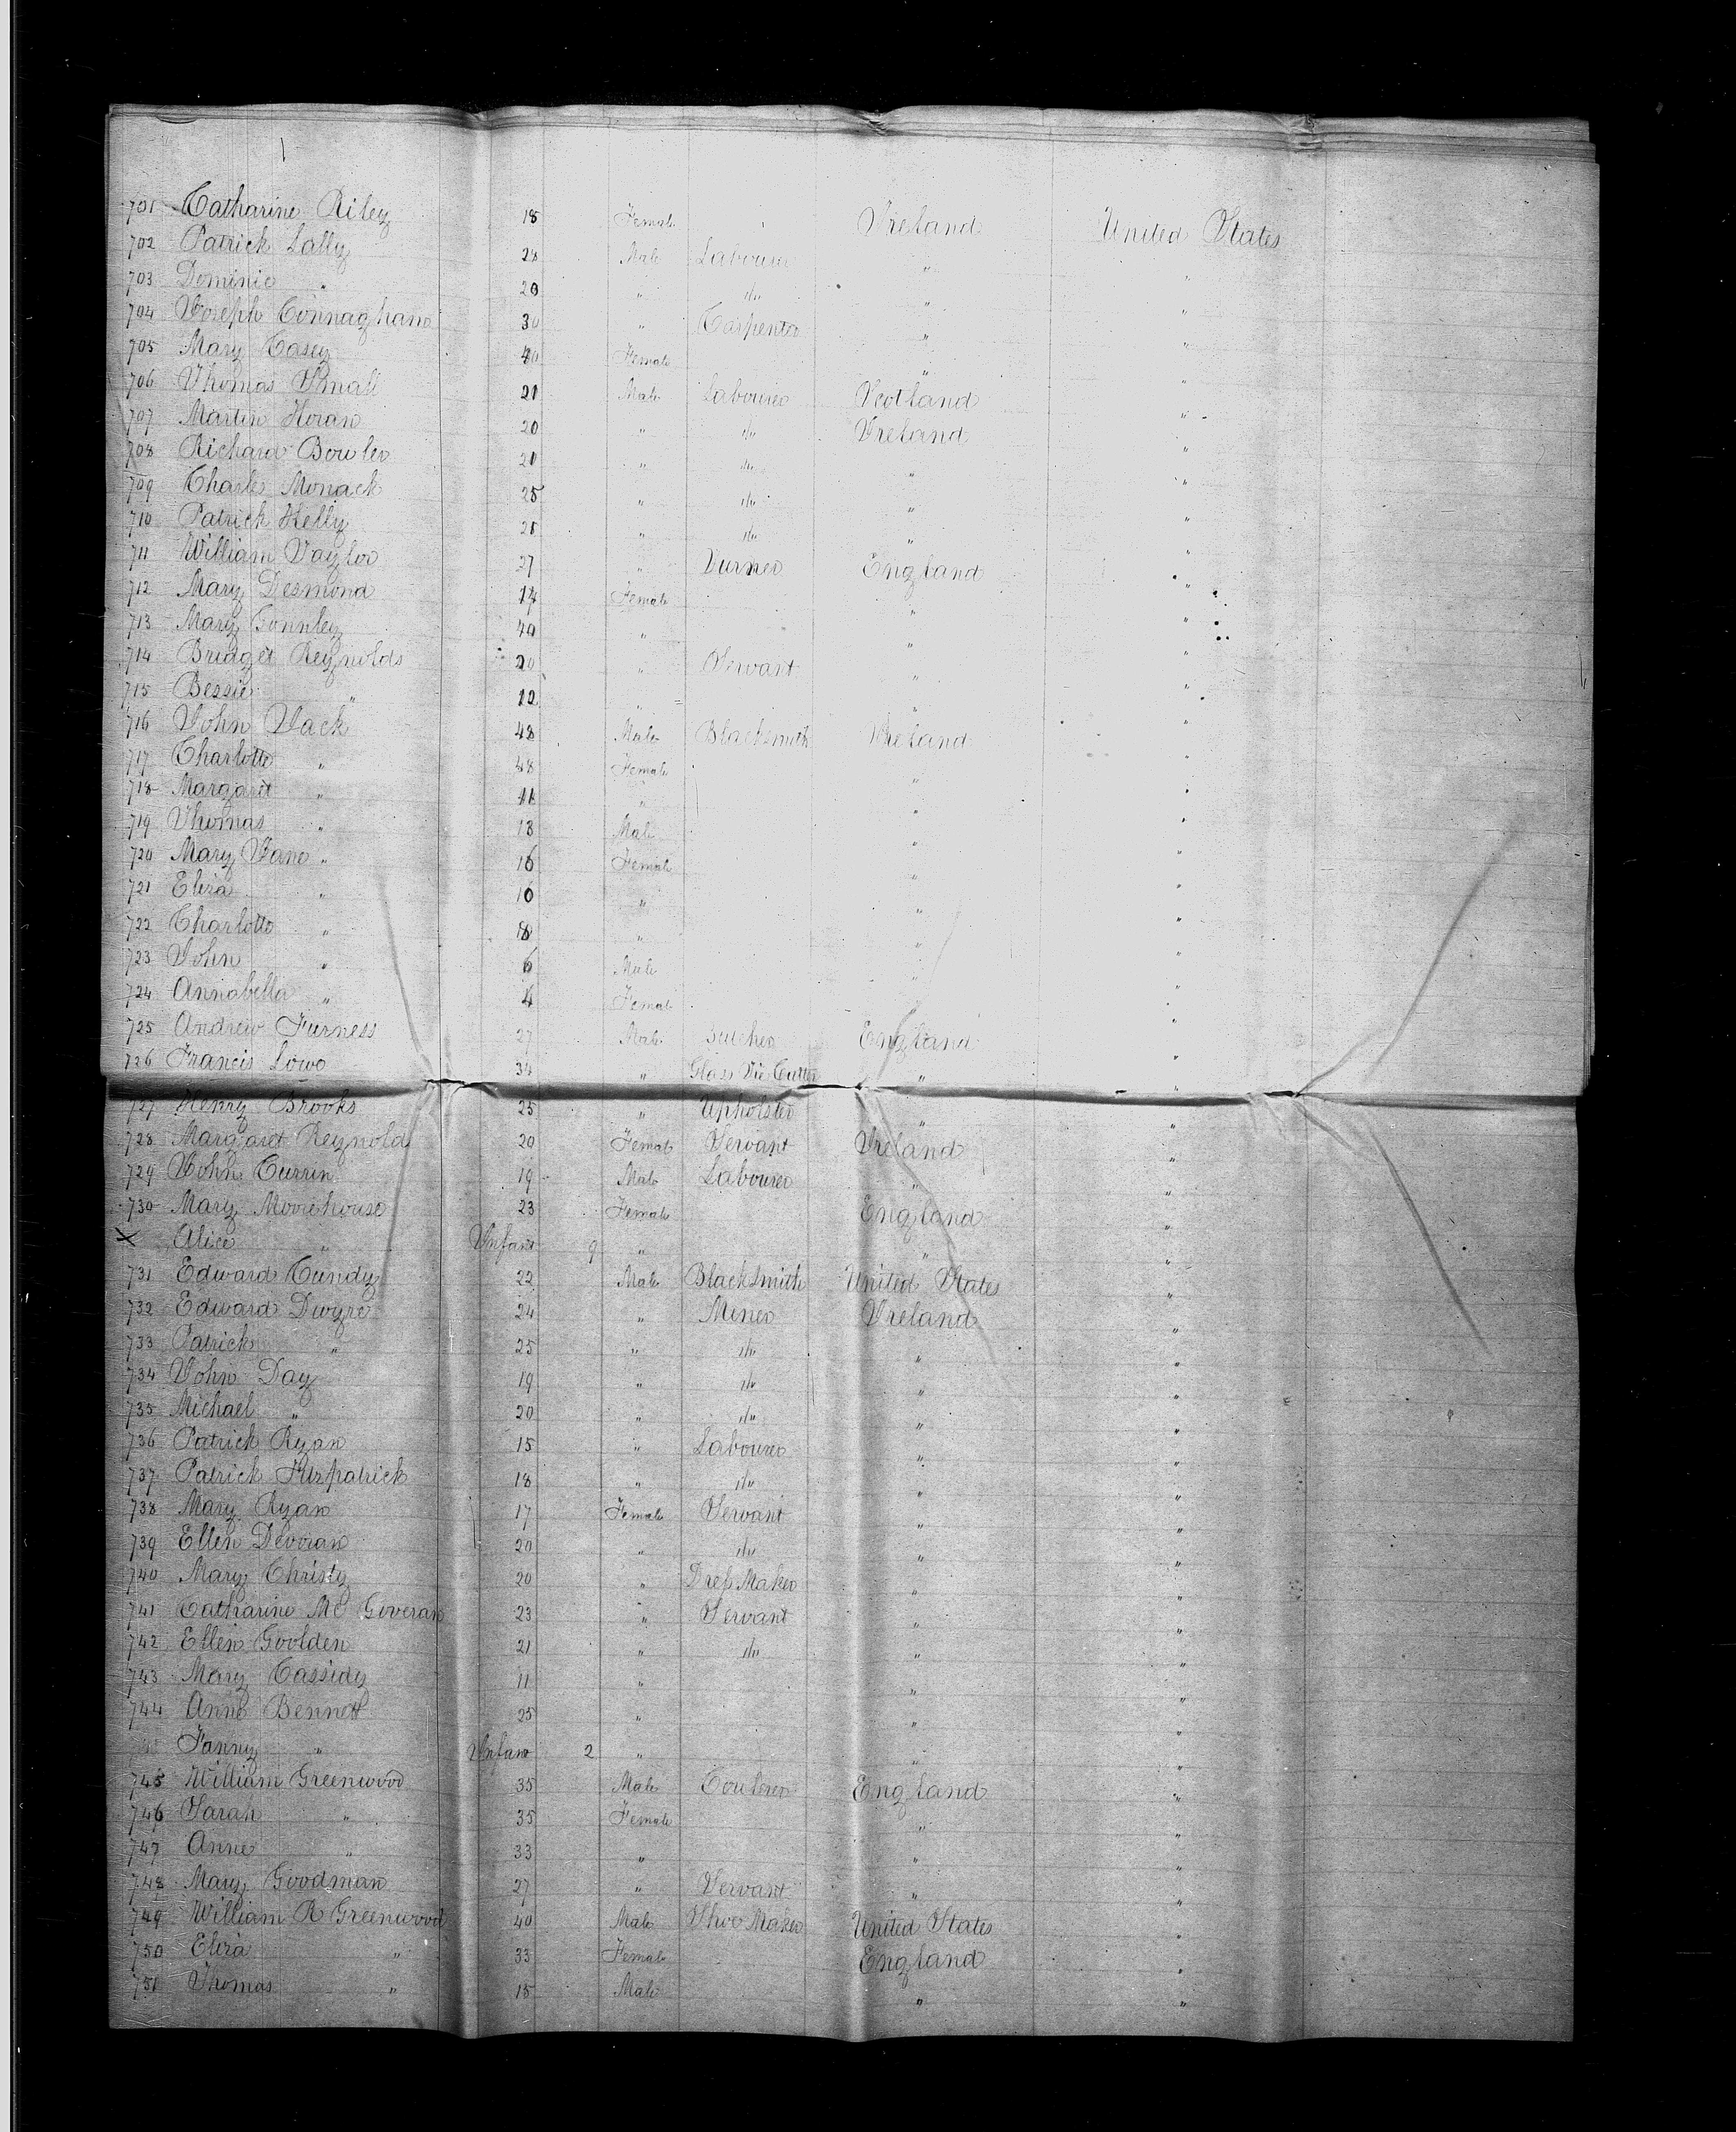 701 Catharine Riley 18 Female Ireland United States
702 Patrick Lally 28 Male Labourer " "
703 Dominic " 20 " do " "
704 Joseph Connaghane 30 " Carpenter " "
705 Mary Casey 40 Female " "
706 Thomas Small 21 Male Labourer Scotland "
707 Martin Horan 20 " do Ireland "
708 Richard Bowler 21 " do " "
709 Charles Monack 25 " do " "
710 Patrick Kelly 21 " do " "
711 William Taylor 27 " Turner England "
712 Mary Desmond 14 Female " "
713 Mary Connley 40 " " "
714 Bridget Reynolds 20 " Servant " "
715 Bessie " 12 " " "
716 John Jack 48 Male Blacksmith Ireland "
717 Charlotte " 48 Female " "
718 Margaret " 11 " " "
719 Thomas " 13 Male " "
720 Mary Jane " 16 Female " "
721 Eliza " 10 " " "
722 Charlotte " 8 " " "
723 John " 6 Male " "
724 Annabella " 4 Female " "
725 Andrew Furness 27 Male Butcher England "
726 Francis Lowe 34 " Glass Die Cutter " "
727 Henry Brooks 25 " Upholster " "
728 Margaret Reynold 20 Female Servant Ireland "
729 John Currin 19 Male Labourer " "
730 Mary Moorehouse 23 Female England "
X Alice " Infant 9 " " "
731 Edward Cundy 22 Male BlackSmith United States "
732 Edward Dwyre 24 " Miner Ireland "
733 Patrick " 25 " do " "
734 John Day 19 " do " "
735 Michael " 20 " do " "
736 Patrick Ryan 15 " Labourer " "
737 Patrick Fitzpatrick 18 " do " "
738 Mary Ryan 17 Female Servant " "
739 Ellen Devoran 20 " do " "
740 Mary Christy 20 " Dress Maker " "
741 Catharine Mc Goveran 23 " Servant " "
742 Ellen Goolden 21 " do " "
743 Mary Cassidy 11 " " "
744 Anne Bennett 25 " " "
Fanny " Infant 2 " " "
745 William Greenwood 35 Male England "
746 Sarah " 35 Female " "
747 Anne " 33 " " "
748 Mary Goodman 27 " Servant " "
749 William R Greenwood 40 Male Shoe Maker United States "
750 Eliza " 33 Female England "
751 Thomas " 15 Male " "